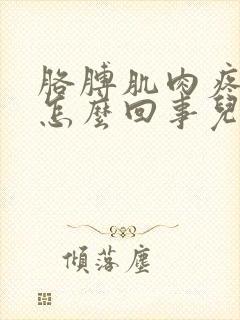 胳膊肌肉疼
怎麼回事兒
傾落塵